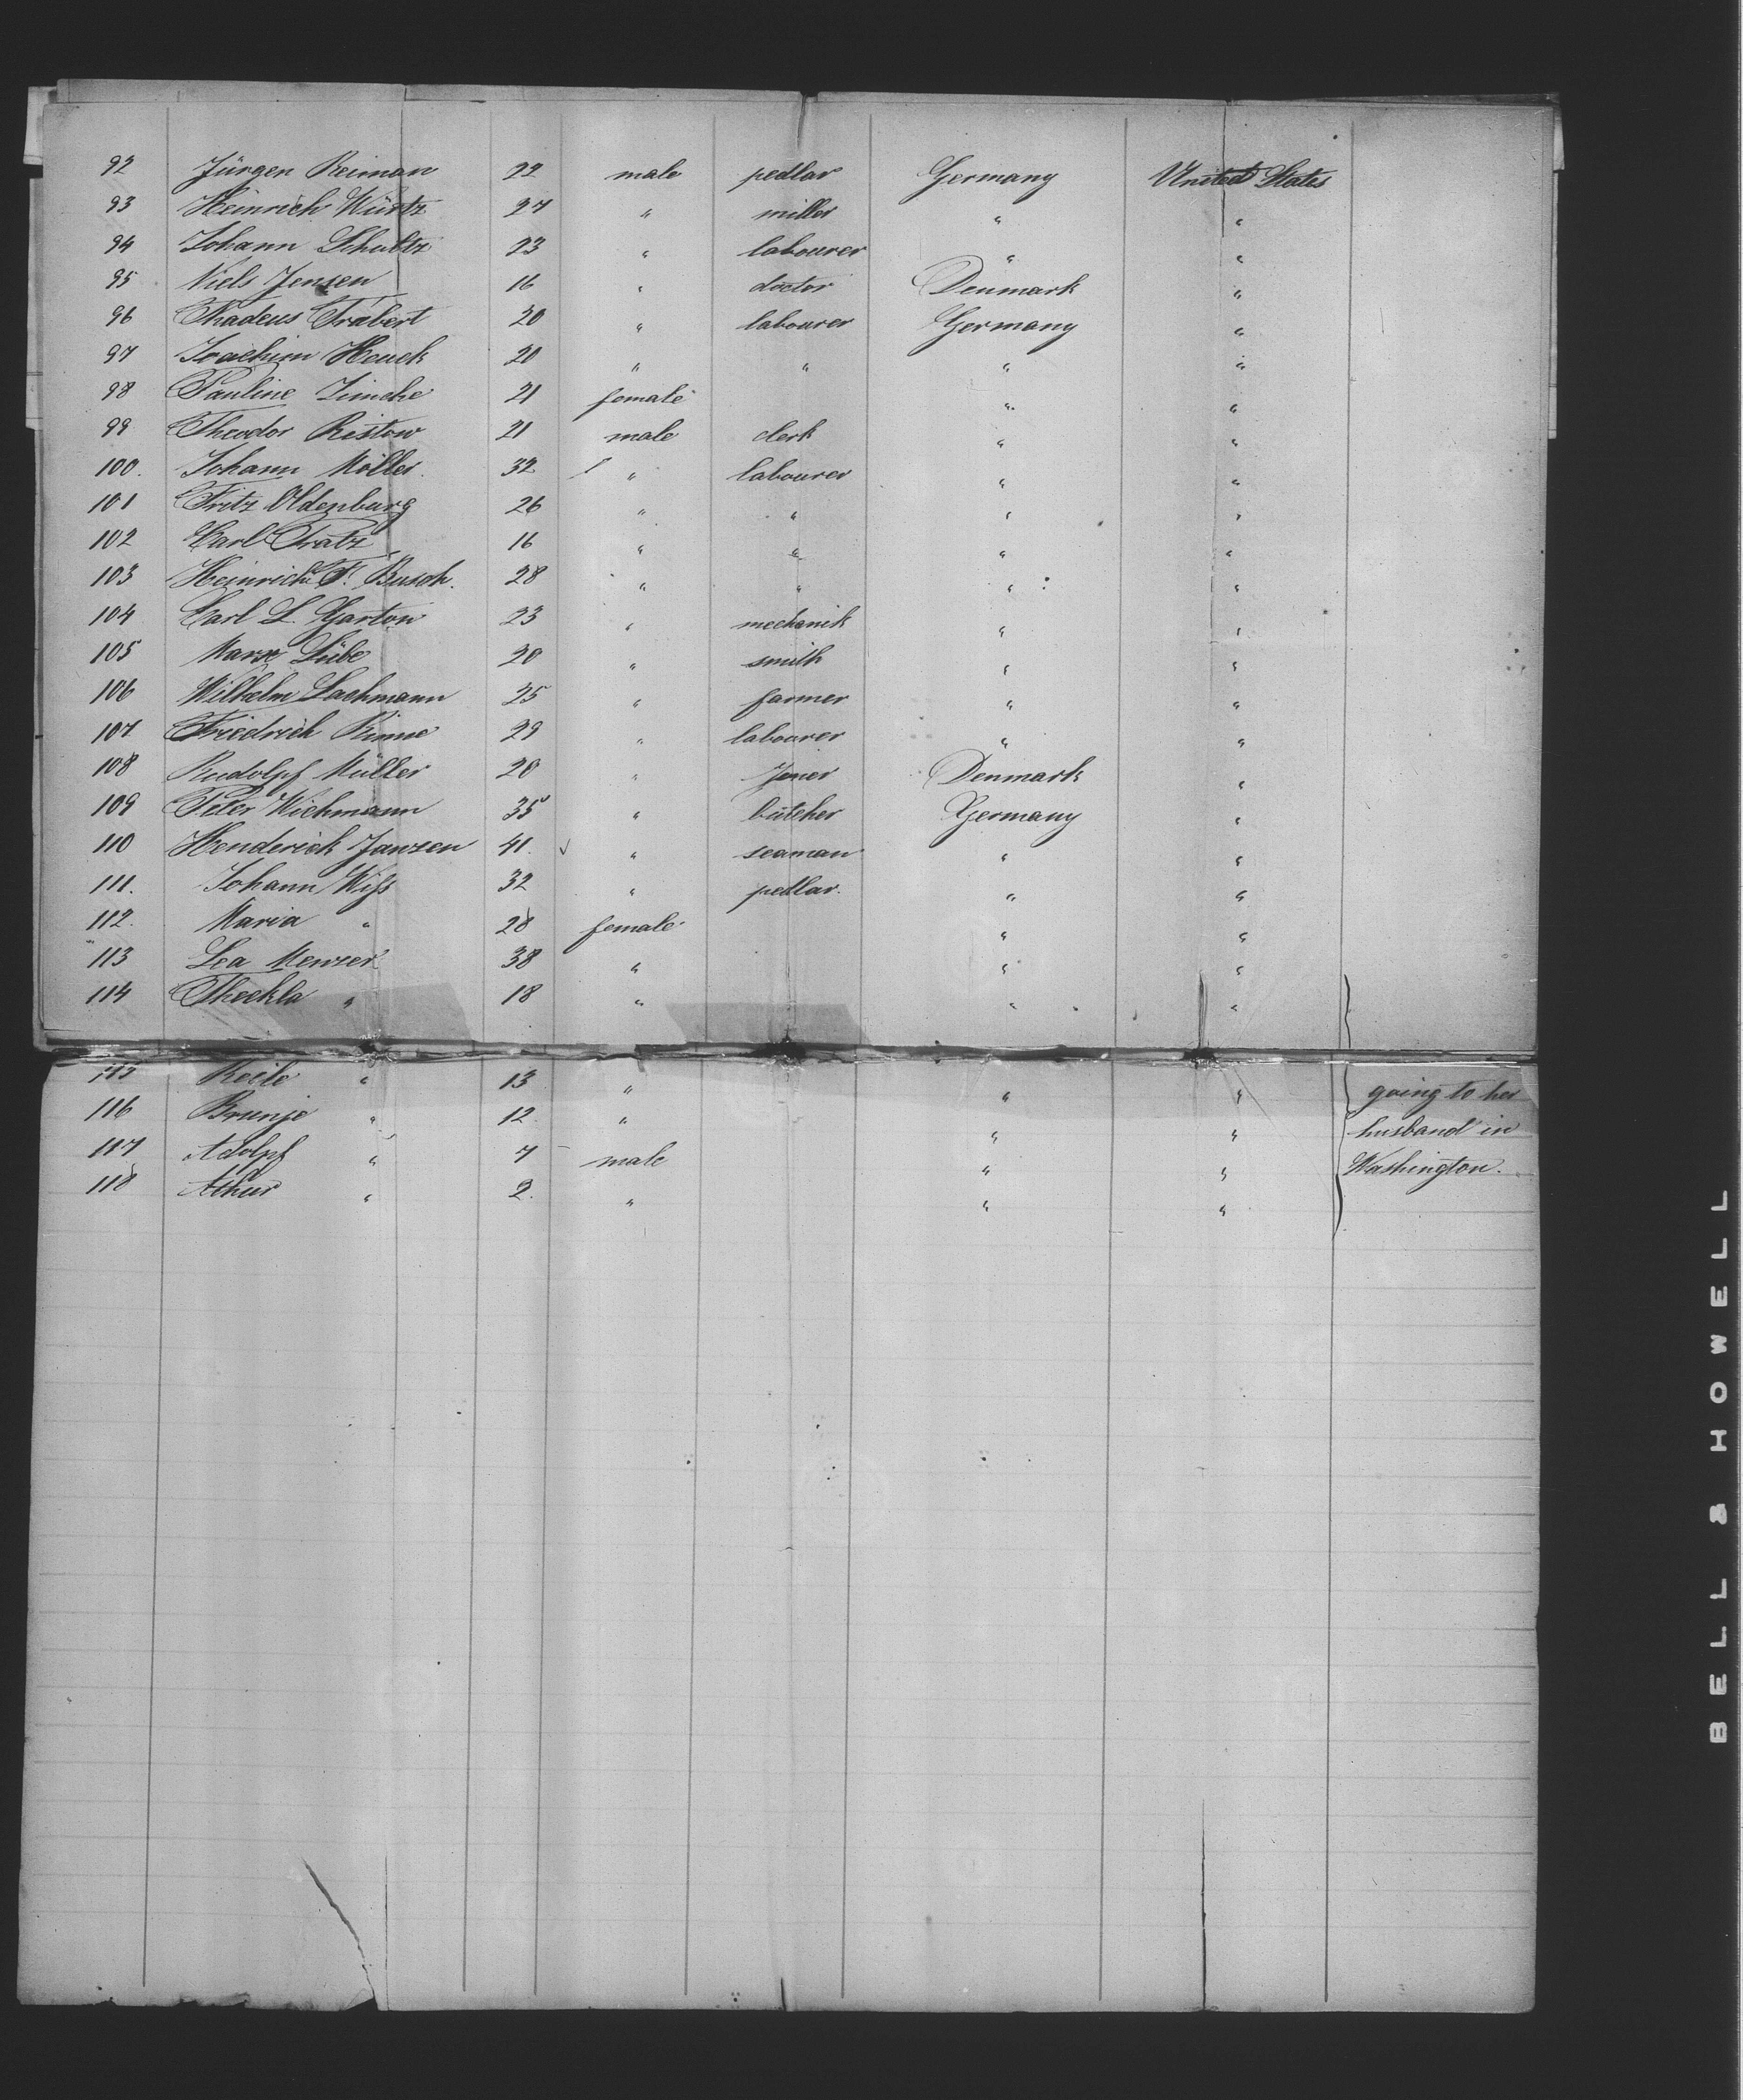 92 Jürgen Reiman 22 male pedlar Germany United States
93 Heinrich Würtz 27 " miller " "
94 Johann Schultz 23 " labourer " "
95 Niels Jensen 16 " doctor Denmark "
96 Thadeus Trabert 20 " labourer Germany "
97 Joachim Heuck 20 " " " "
98 Pauline 21 female " "
99 Theodor Ristow 21 male clerk " "
100. Johann Möller 32 " labourer " "
101 Fritz Oldenburg 26 " " " "
102 Carl Tratz 16 " " " "
103 Heinrich F. Busch. 28 " " " "
104 Carl L. Garton 23 " mechanik " "
105 Marx Lübe 20 " smith " "
106 Wilhelm Lachmann 25 " farmer " "
107 Friedrich Rinne 29 " labourer " "
108 Rudolpf Müller 20 " Denmark "
109 Peter Wichmann 35 " butcher Germany "
110 Henderick Janzen 41. " seaman " "
111. Johann Wiss 32 " pedlar. " "
112. Maria " 28 female " "
113 Lea Menzer 38 " " "
114 Theckla " 18 " " "
115 " 13 " " " going to her
116 Brunje " 12. " " " husband in
117 Adolpf " 7 male " " Washington.
118 Athur " 2. " " "
BELL & HOWELL